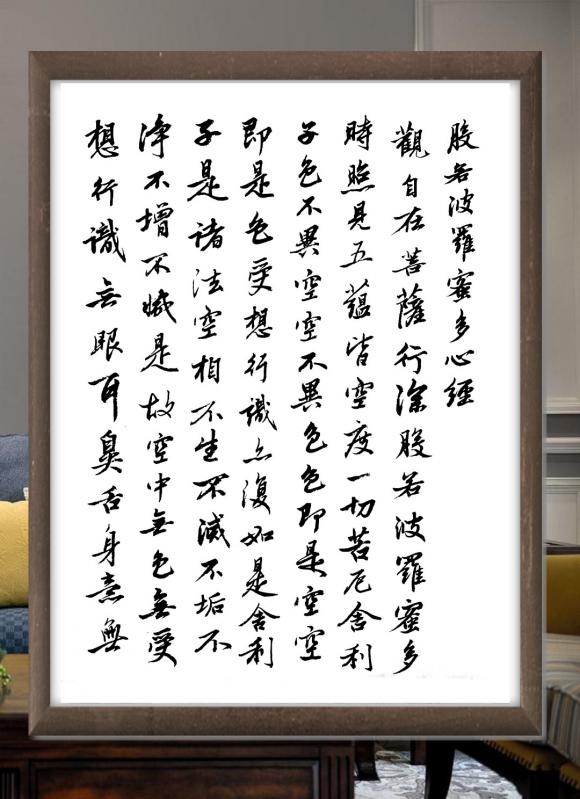 般若波羅蜜多心經
觀自在菩薩行深般若波羅蜜多
時照見五蘊皆空度一切苦厄舍利
子色不異空空不異色色即是空空
即是色受想行識亦復如是舍利
子是諸法空相不生不滅不垢不
淨不增不減是故空中無色無受
想行識无眼耳鼻舌身意無